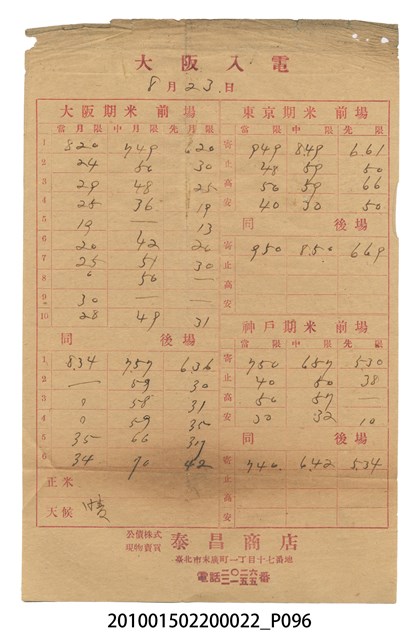 大阪入電
8月23.日
大阪期米 前場
當月限 中月限 先月限
1 820 749 620
2 24 50 30
3 29 48 25
4 25 36 19
5 19 — 13
6 20 42 20
7 25 51 30
8 50 —
9 30 — —
10 28 49 31
同 後場
1 834 757 636
2 — 59 30
3 〃 58 31
4 〃 59 30
5 35 66
6 34 70 42
正米
天候
東京期米 前場
當限 中限 先限
寄 949 849 6.61
止 48 59 50
高 50 59 66
安 40 30 50
同 後場
寄 950 850 669
止
高
安
神戶期米 前場
當限 中限 先限
寄 750 657 530
止 40 50 38
高 50 57 —
安 30 32 10
同 後場
寄 740. 642 534
止
高
安
公債株式
現物賣買
泰昌商店
臺北市末廣町一丁目十七番地
電話二〇二六番
二一五五番
201001502200022_P096